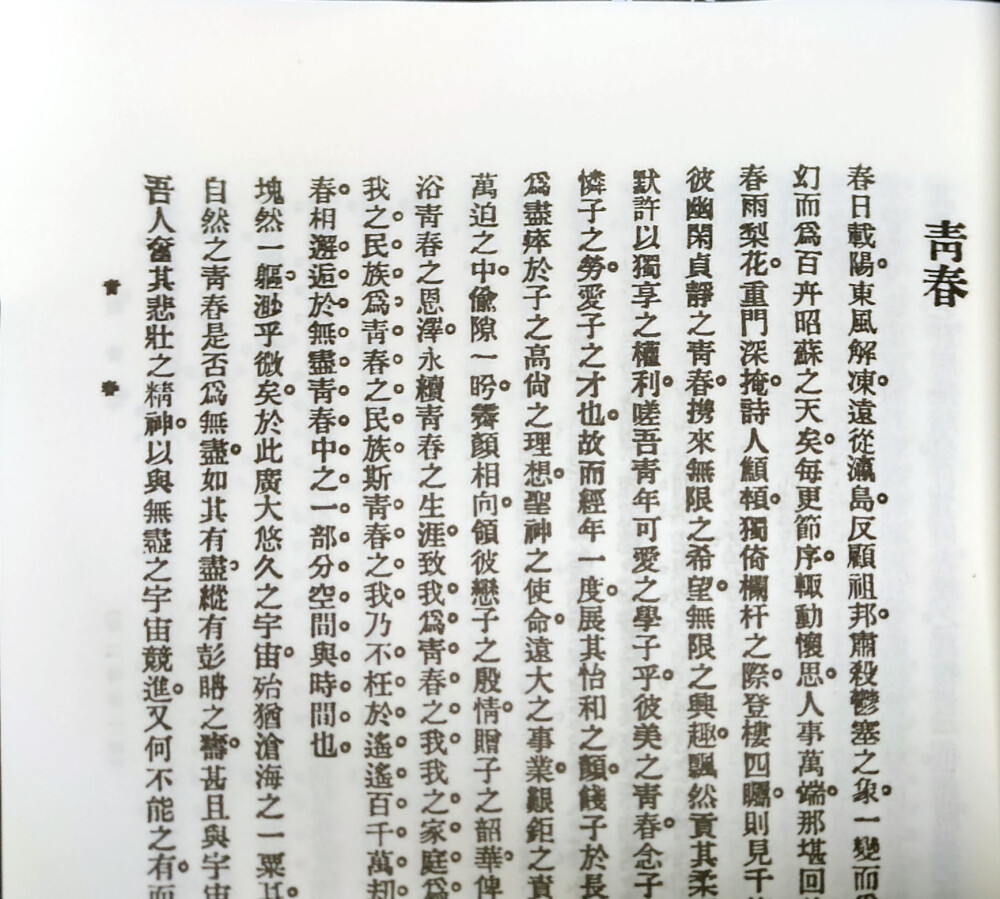 青春
春日載陽。東風解凍。遠從瀛島。反顧祖邦。肅殺鬱塞之象。一變而爲
幻而爲百卉昭蘇之天矣。每更節序。輒動懷思。人事萬端。那堪回
春雨梨花。重門深掩。詩人顦顇。獨倚欄杆之際。登樓四矚。則見千
彼幽閑貞靜之青春。擕來無限之希望。無限之興趣。飄然貢其柔
默許以獨享之權利。嗟吾青年可愛之學子乎。彼美之青春。念子
憐子之勞。愛子之才也。故而經年一度。展其怡和之顏。餞子於長
爲盡瘁於子之高尙之理想。聖神之使命。遠大之事業。艱鉅之責
萬迫之中。偸隙一盻。霽顏相向。領彼戀子之殷情。贈子之韶華。俾
浴青春之恩澤。永續青春之生涯。致我爲青春之我。我之家庭爲
我之民族爲青春之民族。斯青春之我。乃不枉於遙遙百千萬劫
春相邂逅於無盡青春中之一部分空間與時間也
塊然一軀。渺乎微矣。於此廣大悠久之宇宙。殆猶滄海之一粟耳。
自然之青春是否爲無盡。如其有盡。縱有彭聃之壽。甚且與宇宙
吾人奮其悲壯之精神。以與無盡之宇宙競進。又何不能之有。而
青春